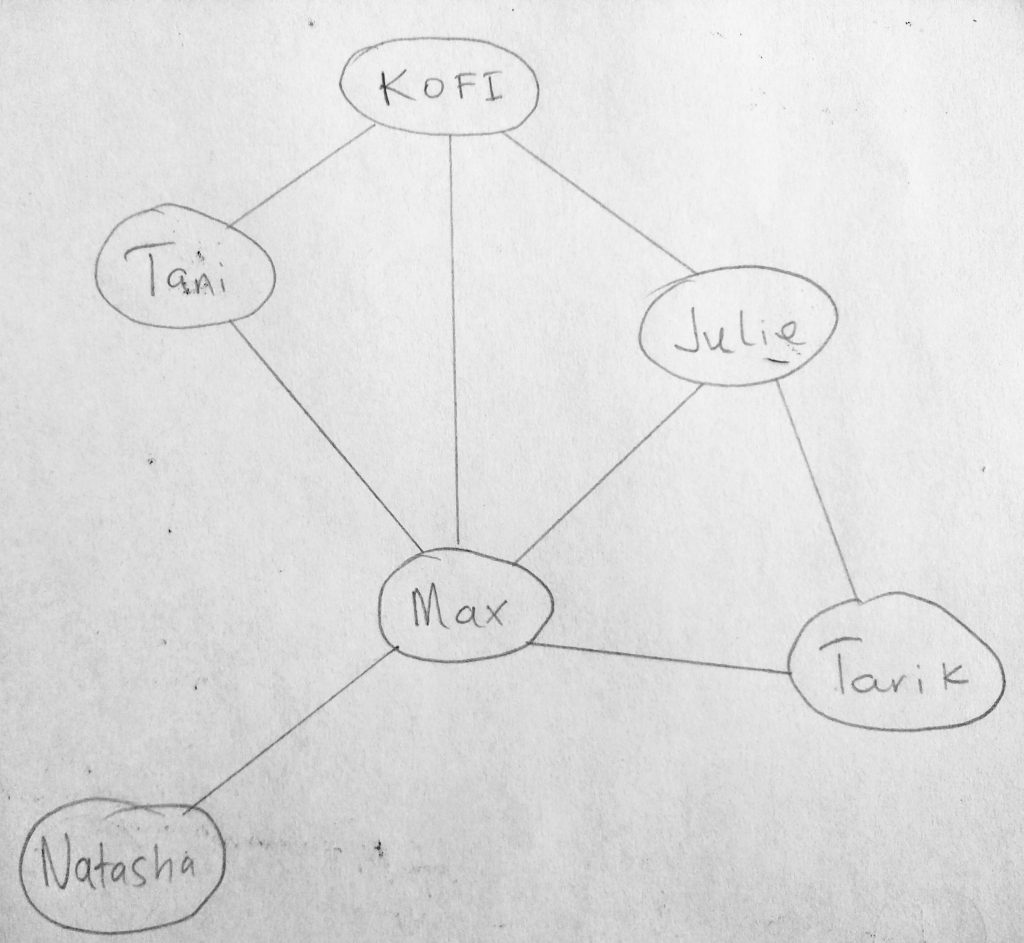 KOFI
Tani
Julie
Max
Tarik
Natasha